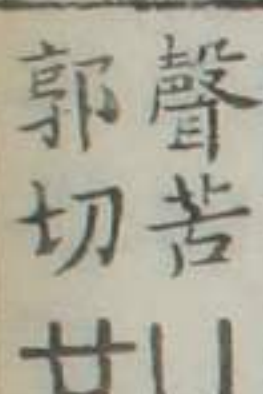 聲苦
郭切